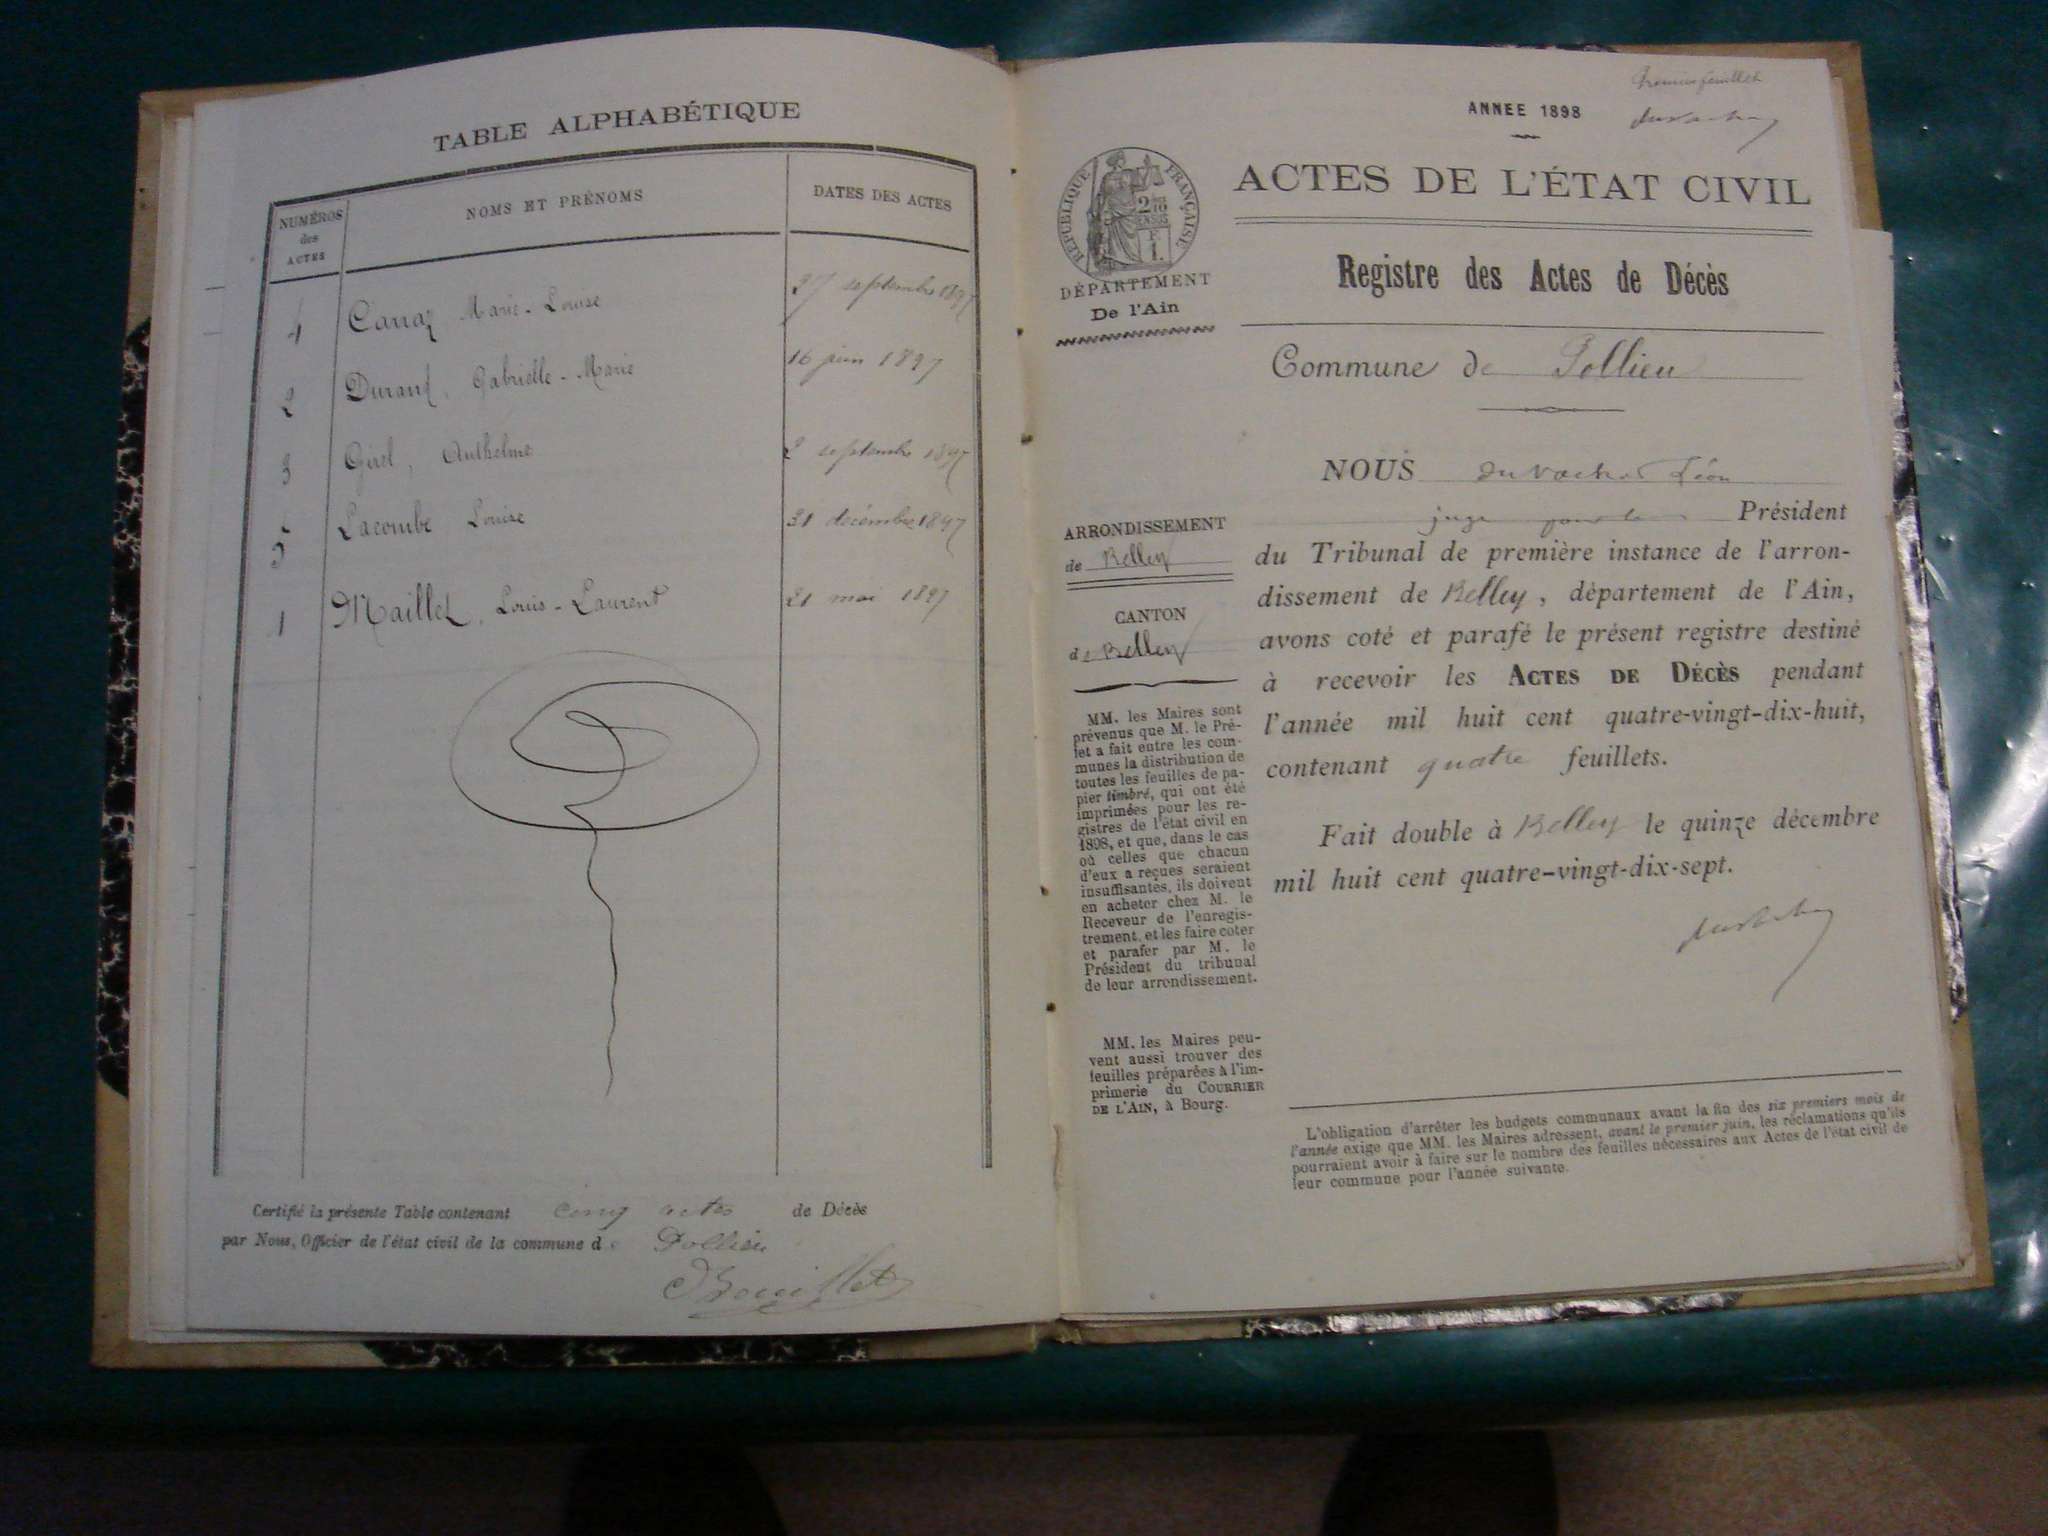 TABLE ALPHABÉTIQUE
NUMÉROS des ACTES
NOMS ET PRÉNOMS
DATES DES ACTES
4 Carraz Marie-Louise septembre 1897
2 Durand, Gabrielle-Marie 16 juin 1897
3 Girel, Anthelme 2 septembre 1897
5 Lacombe Louise 31 décembre 1897
1 Maillet, Louis-Laurent 21 mai 1897
Certifié la présente Table contenant cinq actes de Décès
par Nous, Officier de l'état civil de la commune de Pollieu
Premier feuillet
ANNEE 1898
RÉPUBLIQUE FRANÇAISE
ACTES DE L'ÉTAT CIVIL
Registre des Actes de Décès
DÉPARTEMENT
De l'Ain
Commune de Pollieu
ARRONDISSEMENT
de Belley
CANTON
de Belley
MM. les Maires sont
prévenus que M. le Pré-
fet a fait entre les com-
munes la distribution de
toutes les feuilles de pa-
pier timbré, qui ont été
imprimées pour les re-
gistres de l'état civil en
1898, et que, dans le cas
où celles que chacun
d'eux a reçues seraient
insuffisantes, ils doivent
en acheter chez M. le
Receveur de l'enregis-
trement, et les faire coter
et parafer par M. le
Président du tribunal
de leur arrondissement.
MM. les Maires peu-
vent aussi trouver des
feuilles préparées à l'im-
primerie du COURRIER
DE L'AIN, à Bourg.
NOUS Léon
juge pour le Président
du Tribunal de première instance de l'arron-
dissement de Belley, département de l'Ain,
avons coté et parafé le présent registre destiné
à recevoir les ACTES DE DÉCÈS pendant
l'année mil huit cent quatre-vingt-dix-huit,
contenant quatre feuillets.
Fait double à Belley le quinze décembre
mil huit cent quatre-vingt-dix-sept.
L'obligation d'arrêter les budgets communaux avant la fin des six premiers mois de
l'année exige que MM. les Maires adressent, avant le premier juin, les réclamations qu'ils
pourraient avoir à faire sur le nombre des feuilles nécessaires aux Actes de l'état civil de
leur commune pour l'année suivante.